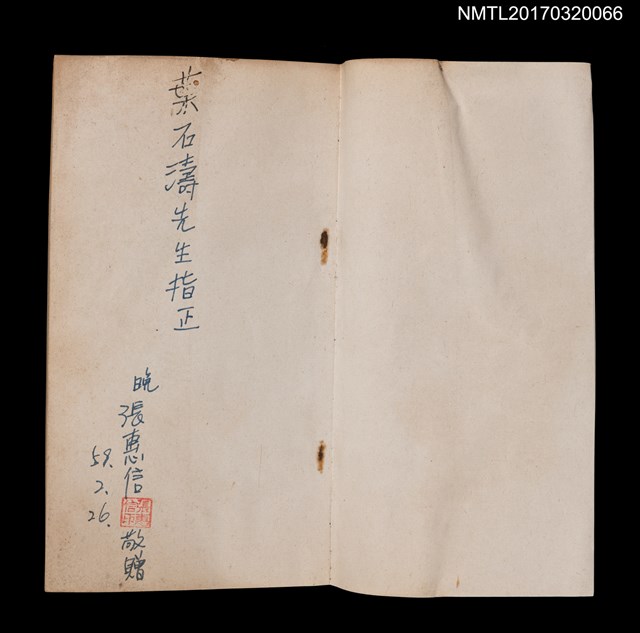 NMTL20170320066
葉石濤先生指正
晚 張惠信 敬贈
59.
2.
26.